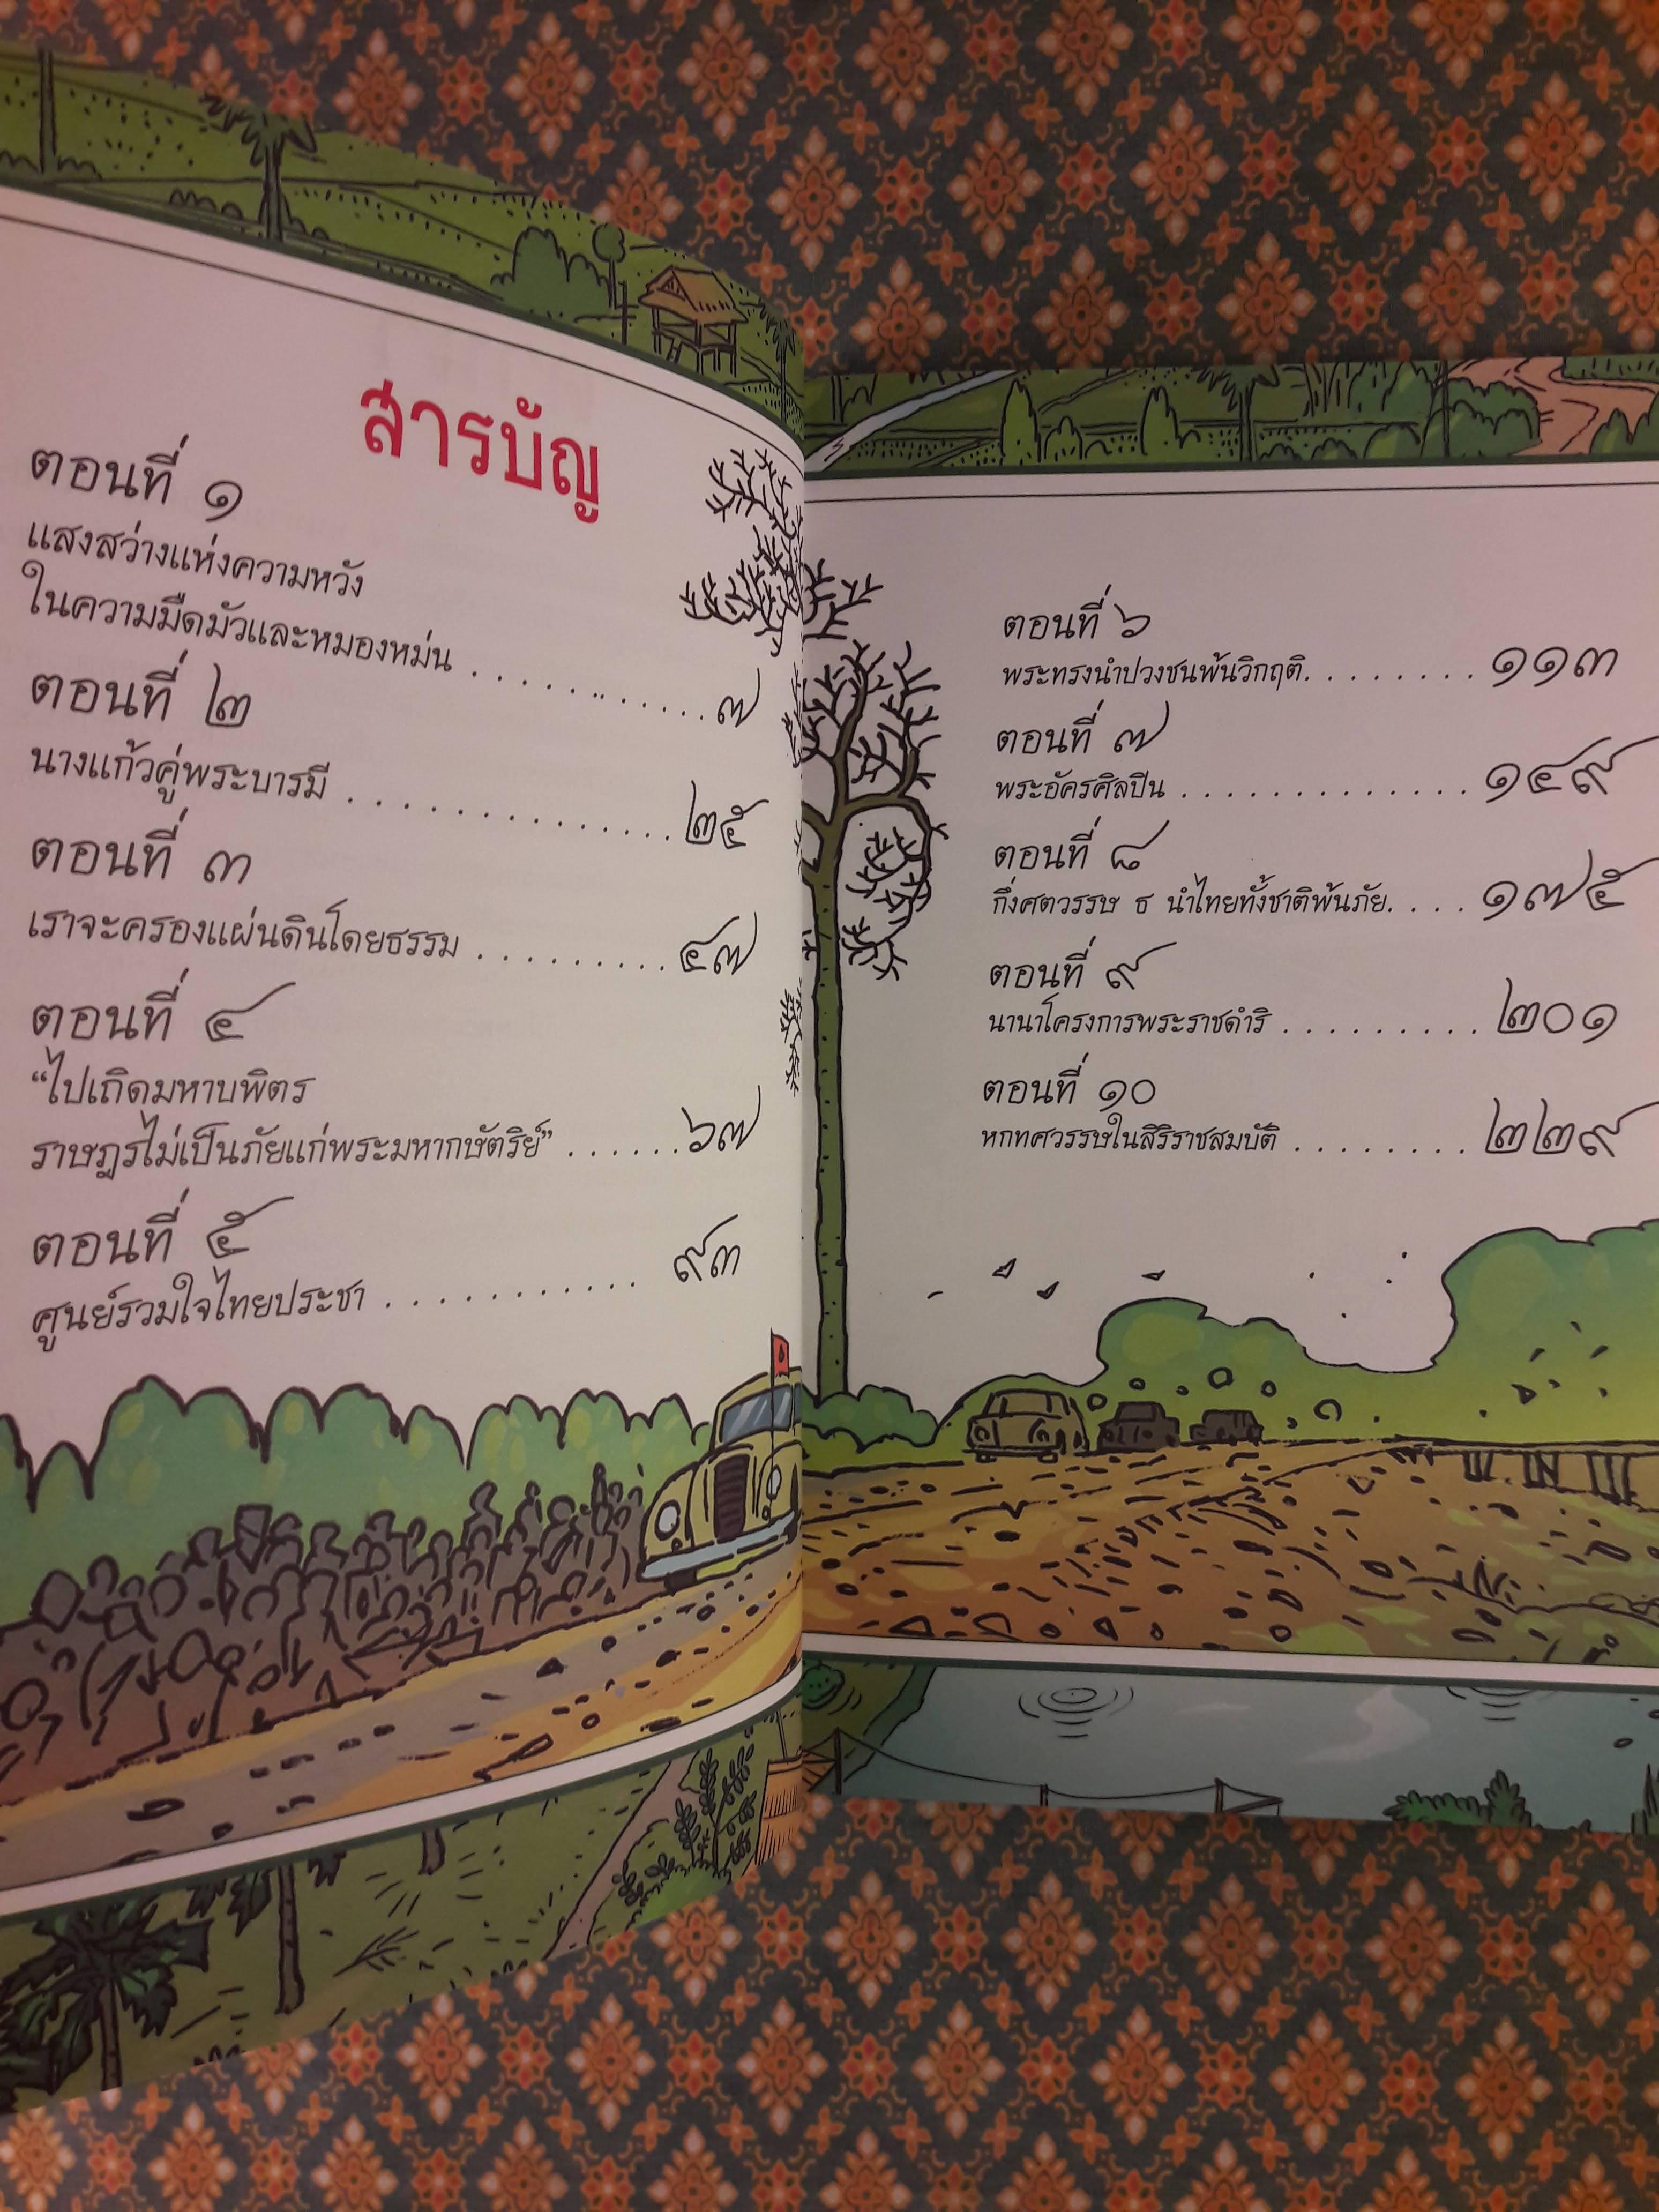 สารบัญ
ตอนที่ ๑
แสงสว่างแห่งความหวัง
ในความมืดมัวและหมองหม่น . . . . . . . . . . . . . ๗
ตอนที่ ๒
นางแก้วคู่พระบารมี . . . . . . . . . . . . . . . ๒๕
ตอนที่ ๓
เราจะครองแผ่นดินโดยธรรม . . . . . . . . . ๔๗
ตอนที่ ๔
“ไปเถิดมหาบพิตร
ราษฎรไม่เป็นภัยแก่พระมหากษัตริย์” . . . . . . ๖๗
ตอนที่ ๕
ศูนย์รวมใจไทยประชา . . . . . . . . . . . ๙๓
ตอนที่ ๖
พระทรงนำปวงชนพ้นวิกฤติ. . . . . . . . ๑๑๓
ตอนที่ ๗
พระอัครศิลปิน . . . . . . . . . . . . . ๑๔๙
ตอนที่ ๘
กึ่งศตวรรษ ธ นำไทยทั้งชาติพ้นภัย. . . . ๑๗๕
ตอนที่ ๙
นานาโครงการพระราชดำริ . . . . . . . . . ๒๐๑
ตอนที่ ๑๐
หกทศวรรษในสิริราชสมบัติ . . . . . . . . ๒๒๙